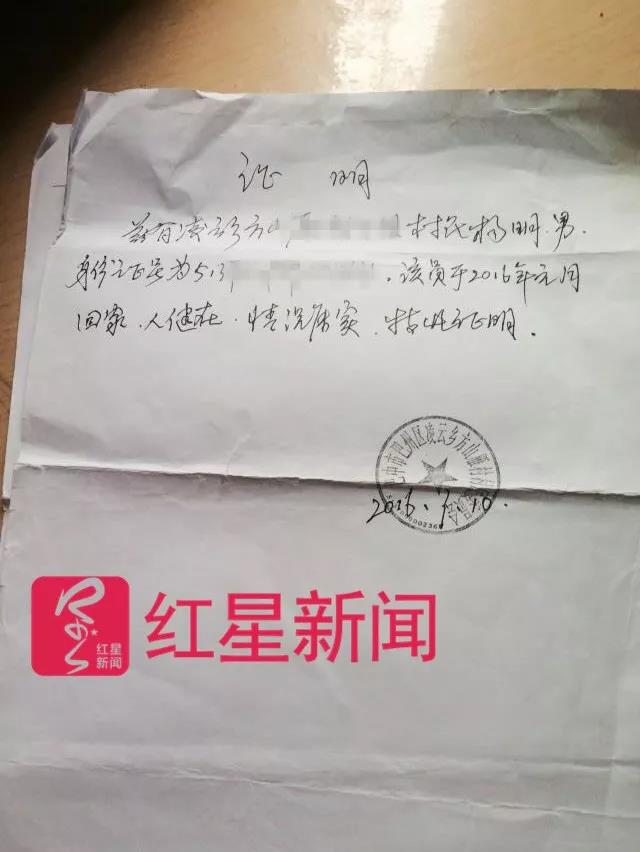 证 明
兹有凌云乡方山 村民杨明.男.
身份证号为513 .该员于2016年元月
回家.人健在.情况属实.特此证明.
巴中市巴州区凌云乡方山 村村
2016. .10.
红星新闻
红星
新闻